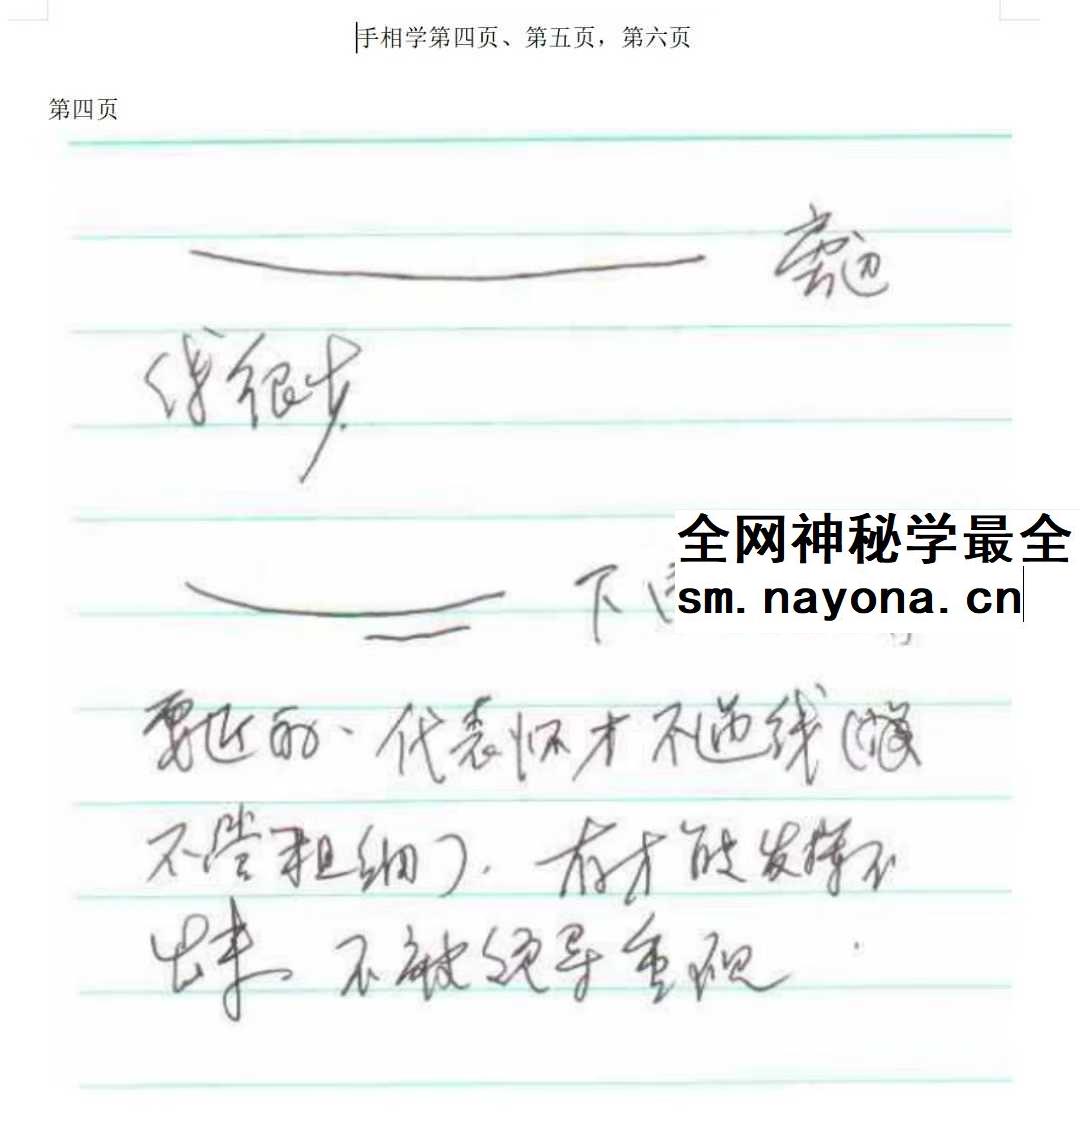 手相学第四页、第五页，第六页
第四页
线很少.
全网神秘学最全
下
sm.nayona.cn
要近的、代表怀才不遇线(
不管粗细)．有才能发挥不
出来、不被领导重视